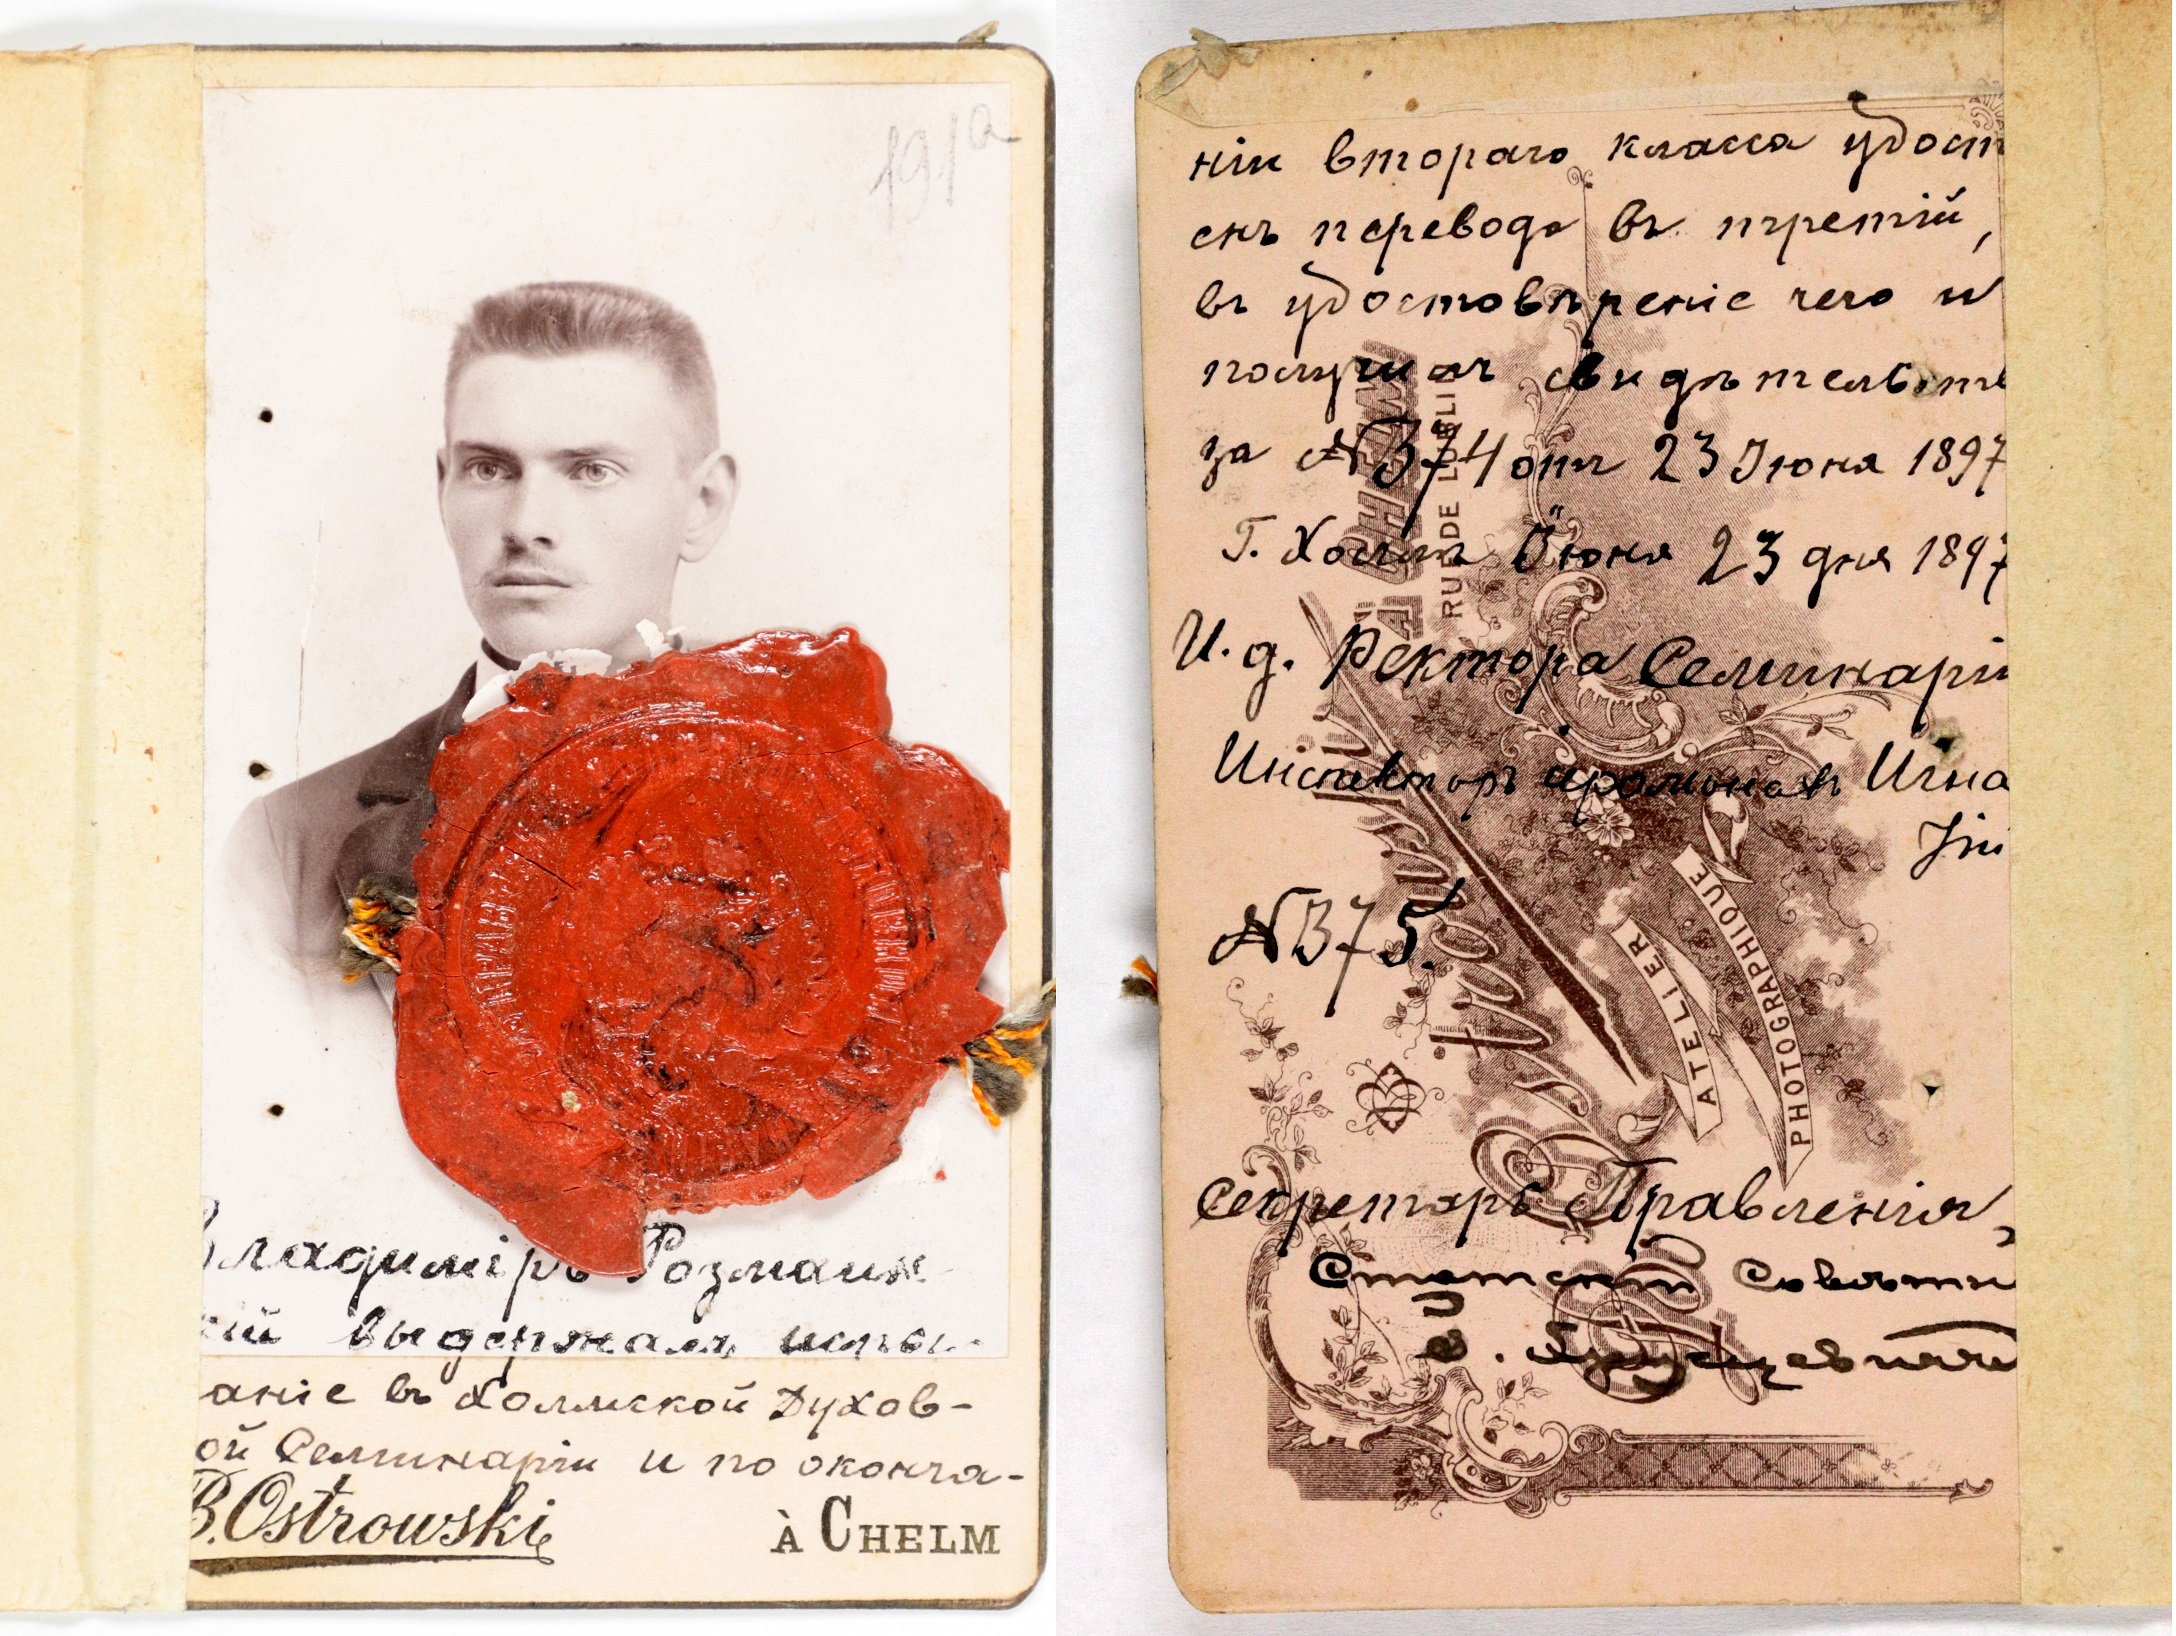 191a
Владиміръ Розманж
кій выдержалъ испы-
аніе въ Холмской Духов-
ой Семинаріи и по оконча-
B. Ostrowski
À CHELM
ніи втораго класса удост
енъ перевода въ третій,
въ удостовѣреніе чего и
получилъ свидѣтельст
за № 374 отъ 23 Іюня 1897
Г. Холмъ Іюня 23 дня 1897
И. д. Ректора Семинаріи
Инспекторъ іеромонахъ Игна
тій
№ 375.
Секретарь Правленія,
Статскій Совѣтни
À CHELM
RUE DE LUBLIN
B. Ostrowski
ATELIER
PHOTOGRAPHIQUE